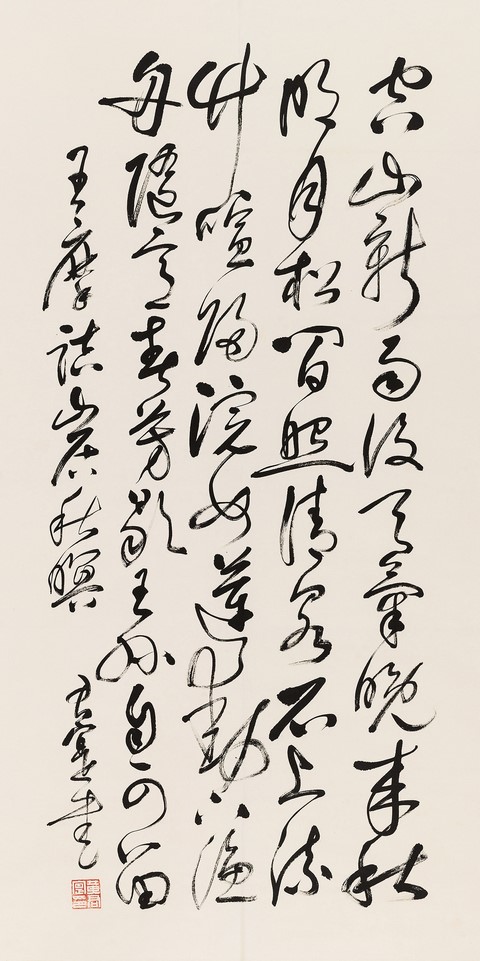 空山新雨後天氣晚来秋
明月松間照清泉石上流
竹喧歸浣女蓮動下漁
舟隨意春芳歇王孫自可留
王摩詰山居秋暝 君寔書